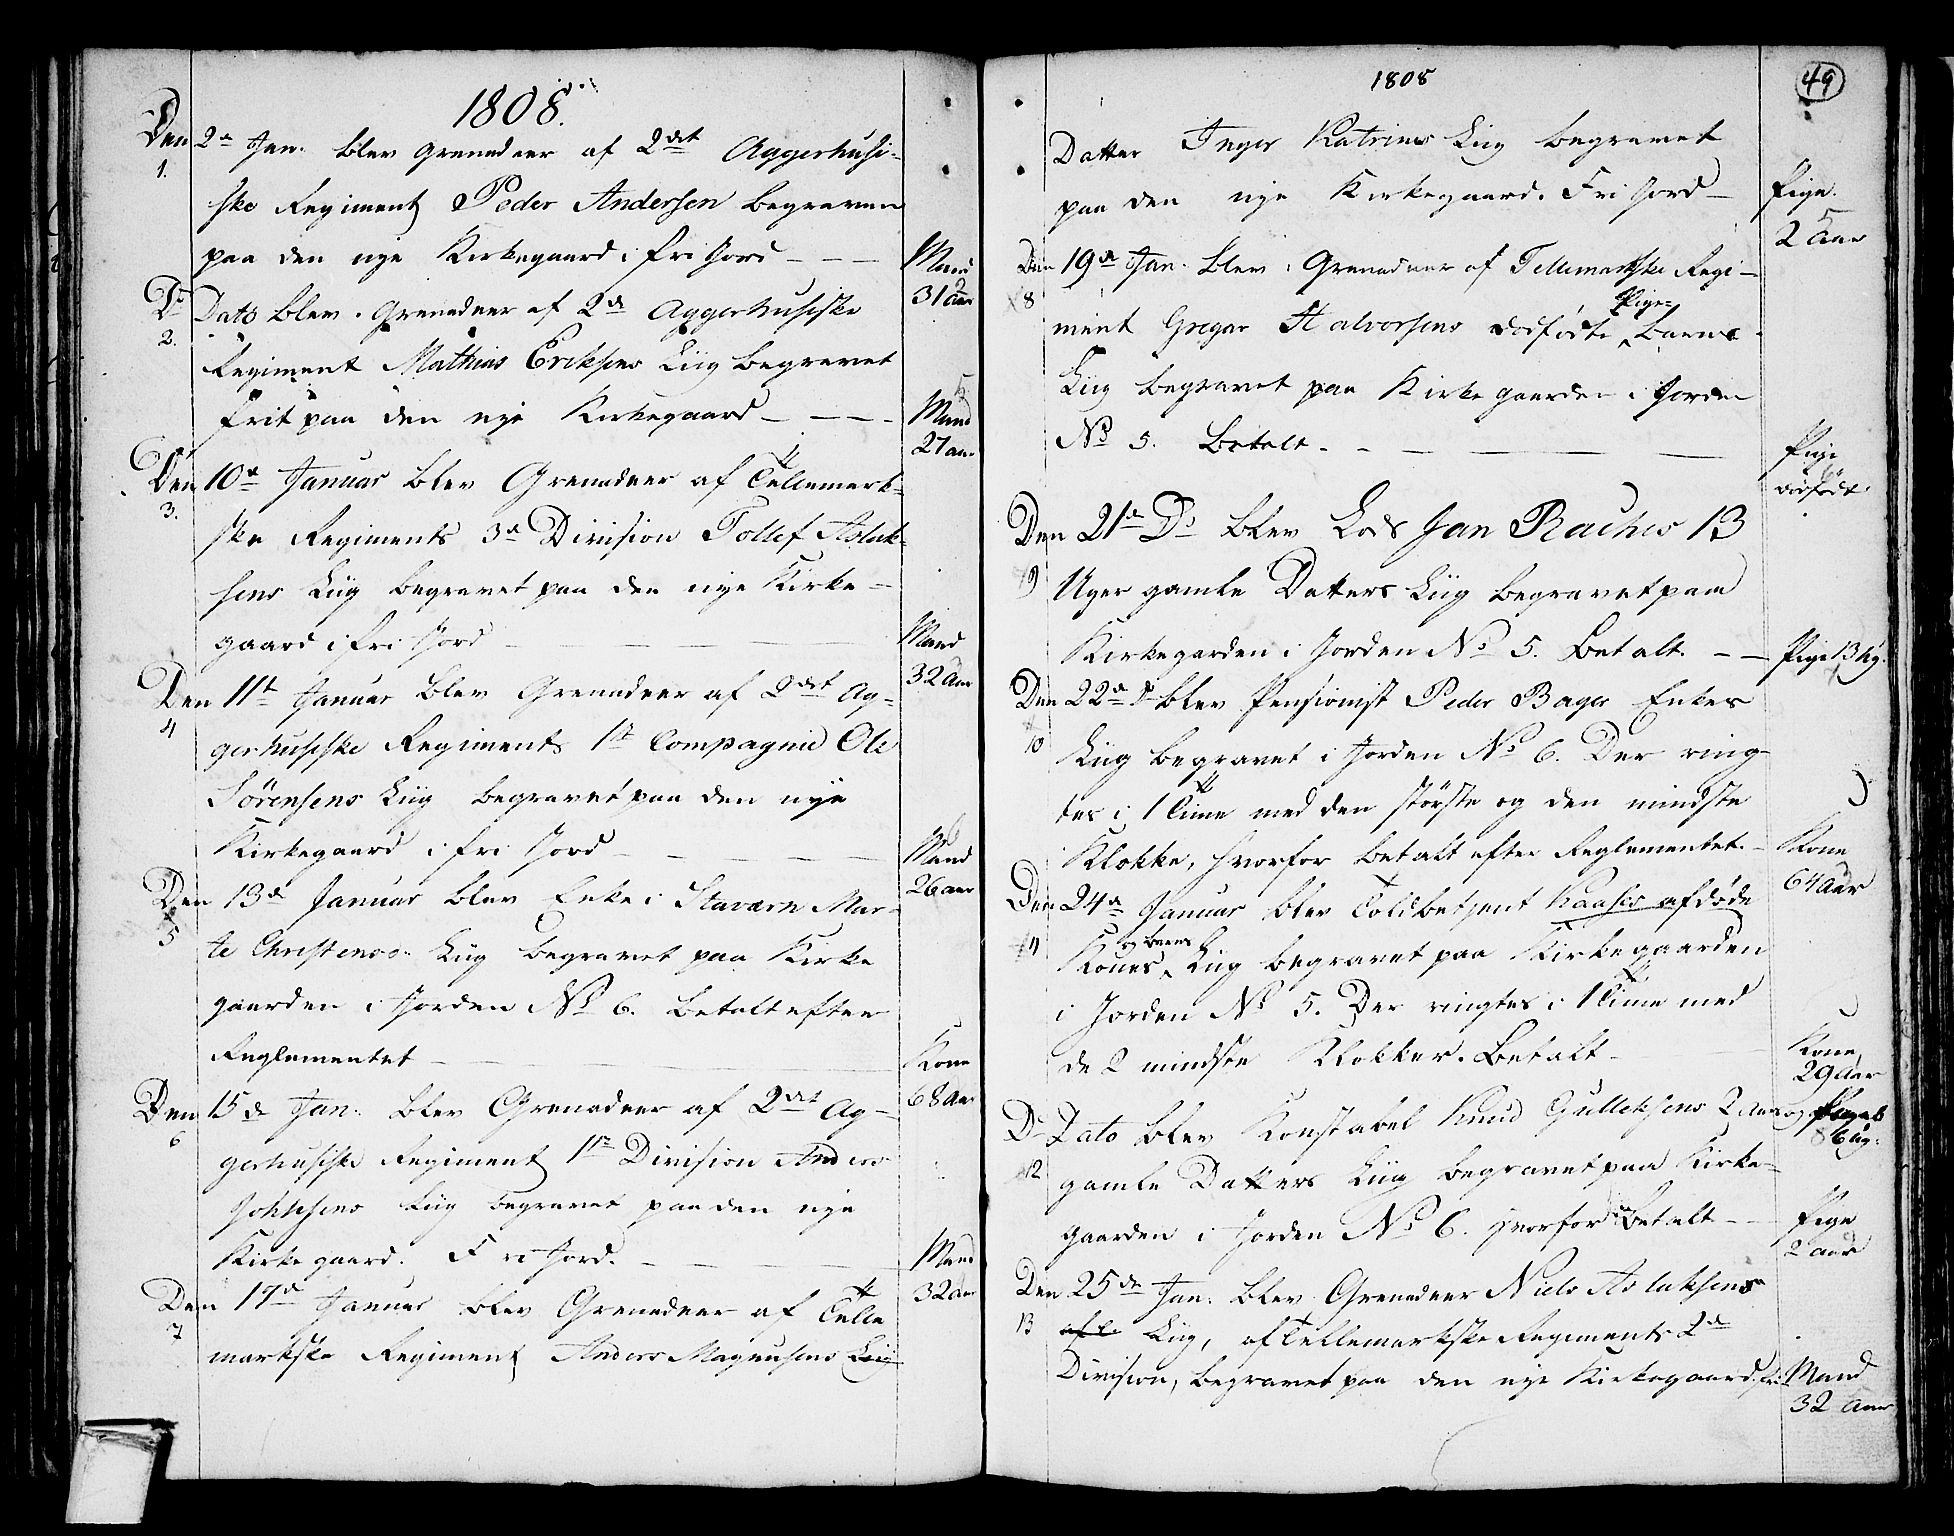 1808.
Den 2n Jan. blev Grenadeer af 2det Aggerhusi-
1.
ske Regiment Peder Andersen begraven
paa den nye Kirkegaard i fri Jord - - -
Mand
31 Aar
Do Dato blev Grenadeer af 2d Aggerhusiske
2.
Regiment Mathias Eriksens Liig begravet
frit paa den nye Kirkegaard - - -
Mand
27 aar
Den 10de Januar blev Grenadeer af Tellemark-
3.
ske Regiments 3d Division Tollef Aslak-
sens Liig begravet paa den nye Kirke-
gaard i fri Jord
Mand
32 Aar
Den 11t Januar blev Grenadeer af 2det Ag-
4
gerhusiske Regiments 1st Compagnie Ole
Sörensens Liig begravet paa den nye
Kirkegaard i fri Jord
Mand
26 aar
Den 13d Januar blev Enke i Staværn Mar-
5
te Christens Liig begravet paa Kirke
gaarden i Jorden No 6. Betalt efter
Reglementet
Kone
68 Aar
Den 15de Jan. blev Grenadeer af 2det Ag-
6
gerhusiske Regiment 1ste Division Anders
Liig begravet paa den nye
Kirkegaard. Fri Jord.
Mand
32 aar
Den 17d Januar blev Grenadeer af Telle
7
markske Regiment Anders Magnusens Liig
1808
49
Datter Inger Katrines Liig begravet
paa den nye Kirkegaard. Fri Jord -
Pige
2 Aar
Den 19de Jan. blev Grenadeer af Tellemarkske Regi-
8
ment Gregar Halvorsens dødfødte Pige- Barns
Liig begravet paa Kirkegaarden i Jorden
No 5. Betalt.
Pige
dødfødt
Den 21d Do blev Lods Jan Raches 13
9
Uger gamle Datters Liig begravet paa
Kirkegarden i Jorden No 5. Betalt. - -
Pige 13 Ug.
Den 22d Do blev Pensionist Peder Bager Enkes
10
Liig begravet i Jorden No 6. Der ring-
tes i 1 Time med den störste og den mindste
Klokke, hvorfor betalt efter Reglementet. -
Kone
64 Aar
Den 24d Januar blev Toldbetjent Kaases afdöde
11
Kones og Barns Liig begravet paa Kirkegaarden
i Jorden No 5. Der ringtes i 1 Time med
de 2 mindste Klokker. Betalt -
Kone
29 Aar
Do Dato blev Konstabel Knud Gulleksens 2 Aar
12
gamle Datters Liig begravet paa Kirke-
gaarden i Jorden No 6. hvorfor betalt - -
Pige
2 aar
Den 25de Jan. blev Grenadeer Niels Aslaksens
13
Liig, af Tellemarkske Regiments 2d
Division, begravet paa den nye Kirkegaard, fri
Mand
32 Aar